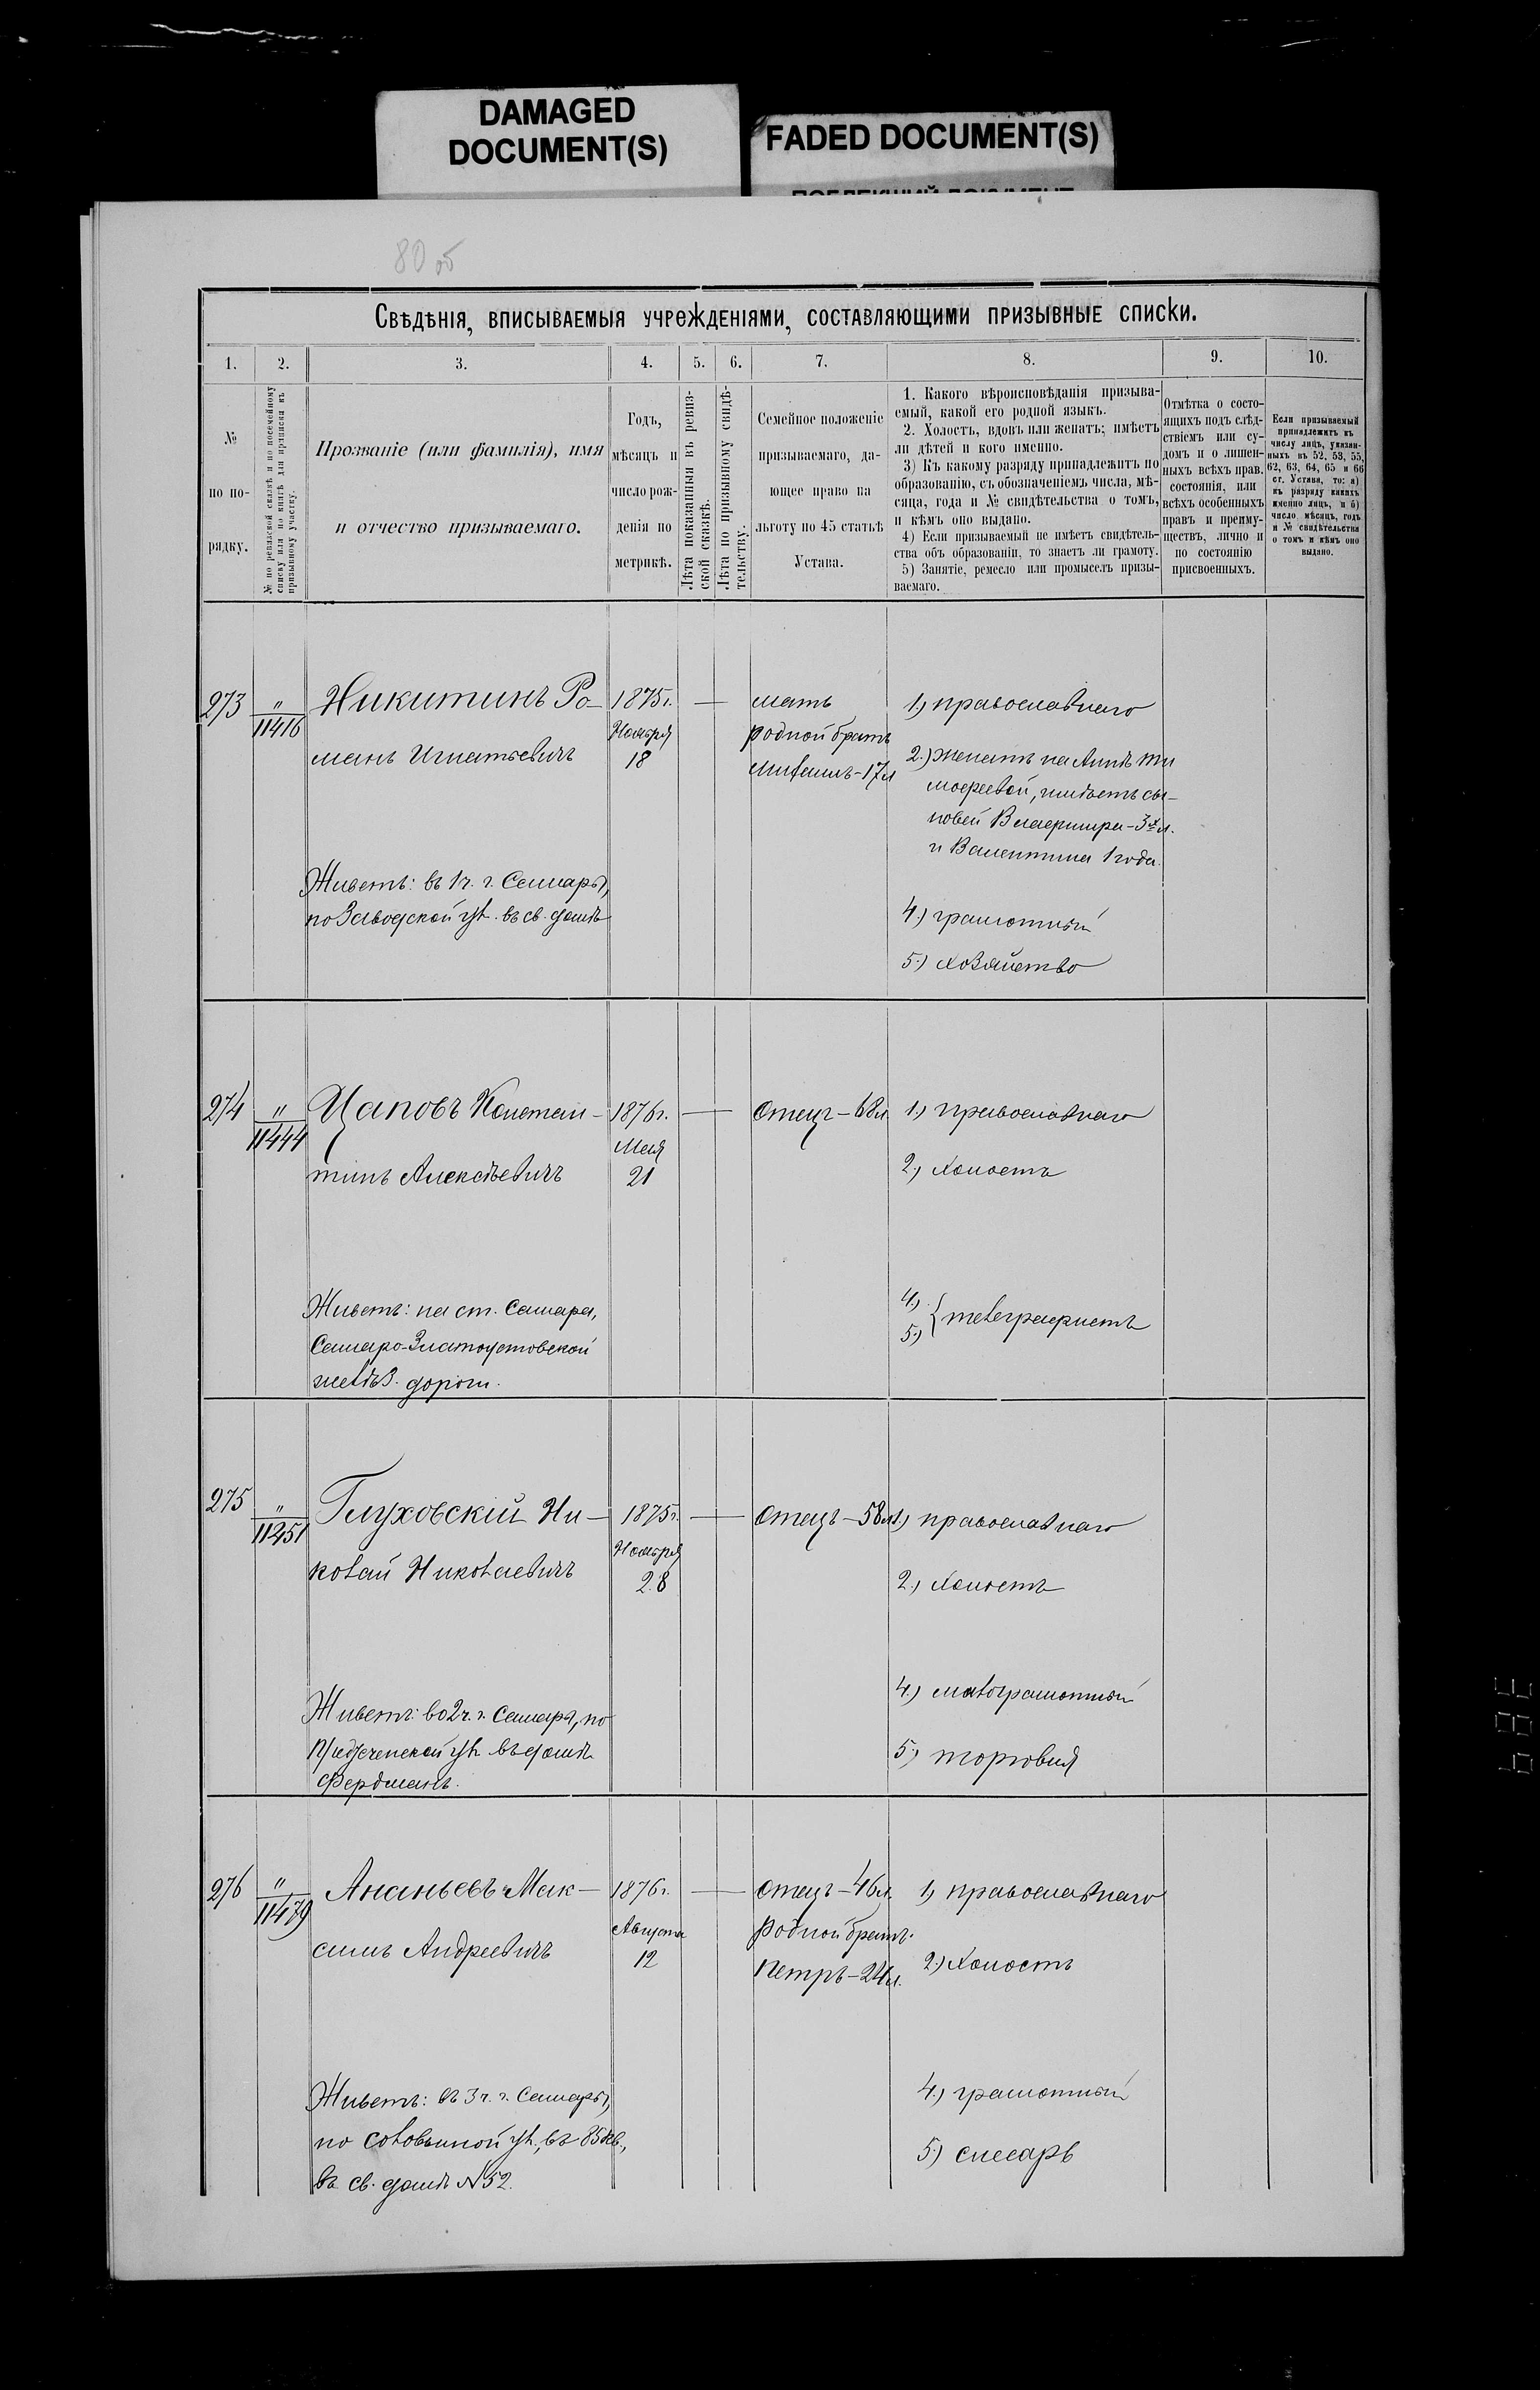 DAMAGED
DOCUMENT(S)
FADED DOCUMENT(S)
80 об
Свѣдѣнія, вписываемыя учрежденіями, составляющими призывные списки.
1. 2. 3. 4. 5. 6. 7. 8. 9. 10.
№
по по-
рядку.
№ по ревизской сказкѣ и по посемейному
списку или по книгѣ для приписки къ
призывному участку.
Прозваніе (или фамилія), имя
и отчество призываемаго.
Годъ,
мѣсяцъ и
число рож-
денія по
метрикѣ.
Лѣта показанныя въ ревиз-
ской сказкѣ.
Лѣта по призывному свидѣ-
тельству.
Семейное положеніе
призываемаго, да-
ющее право на
льготу по 45 статьѣ
Устава.
1. Какого вѣроисповѣданія призыва-
емый, какой его родной языкъ.
2. Холостъ, вдовъ или женатъ; имѣетъ
ли дѣтей и кого именно.
3) Къ какому разряду принадлежитъ по
образованію, съ обозначеніемъ числа, мѣ-
сяца, года и № свидѣтельства о томъ,
и кѣмъ оно выдано.
4) Если призываемый не имѣетъ свидѣтель-
ства объ образованіи, то знаетъ ли грамоту.
5) Занятіе, ремесло или промыселъ призы-
ваемаго.
Отмѣтка о состо-
ящихъ подъ слѣд-
ствіемъ или су-
домъ и о лишен-
ныхъ всѣхъ прав.
состоянія, или
всѣхъ особенныхъ
правъ и преиму-
ществъ, лично и
по состоянію
присвоенныхъ.
Если призываемый
принадлежитъ къ
числу лицъ, указан-
ныхъ въ 52, 53, 55,
62, 63, 64, 65 и 66
ст. Устава, то: а)
къ разряду какихъ
именно лицъ, и б)
число мѣсяцъ, годъ
и № свидѣтельства
о томъ и кѣмъ оно
выдано.
273
"
11416
Никитинъ Ро-
манъ Игнатьевичъ
Живетъ: въ 1 ч. г. Самары,
по Заводской ул. въ св. домѣ
1875 г.
Ноября
18
мать
родной братъ
Михаилъ - 17 л
1) православнаго
2.) женатъ на Аннѣ Ти
мофеевой, имѣетъ сы-
новей Владимира - 3х л.
и Валентина 1 года.
4.) грамотный
5.) хозяйство
274
"
11444
Цаповъ Констан-
тинъ Алексѣевичъ
Живетъ: на ст. Самара,
Самаро-Златоустовской
желѣз. дороги.
1876 г.
Мая
21
Отецъ - 68 л
1) православнаго
2.) холостъ
4.)
5.) { телеграфистъ
275
"
11451
Глуховскій Ни-
колай Николаевичъ
Живетъ: во 2 ч. г. Самары, по
ул. въ домѣ
Фердманъ.
1875 г.
Ноября
28
Отецъ - 58 л
1) православнаго
2.) холостъ
4.) малограмотный
5.) торговля
276
"
11479
Ананьевъ Мак-
симъ Андреевичъ
Живетъ: въ 3 ч. г. Самары,
по Соловьиной ул., въ 85 кв.,
въ св. домѣ № 52.
1876 г.
Августа
12
Отецъ - 46 л.
родной братъ
Петръ - 24 л.
1) православнаго
2.) холостъ
4.) грамотный
5.) слесарь
789